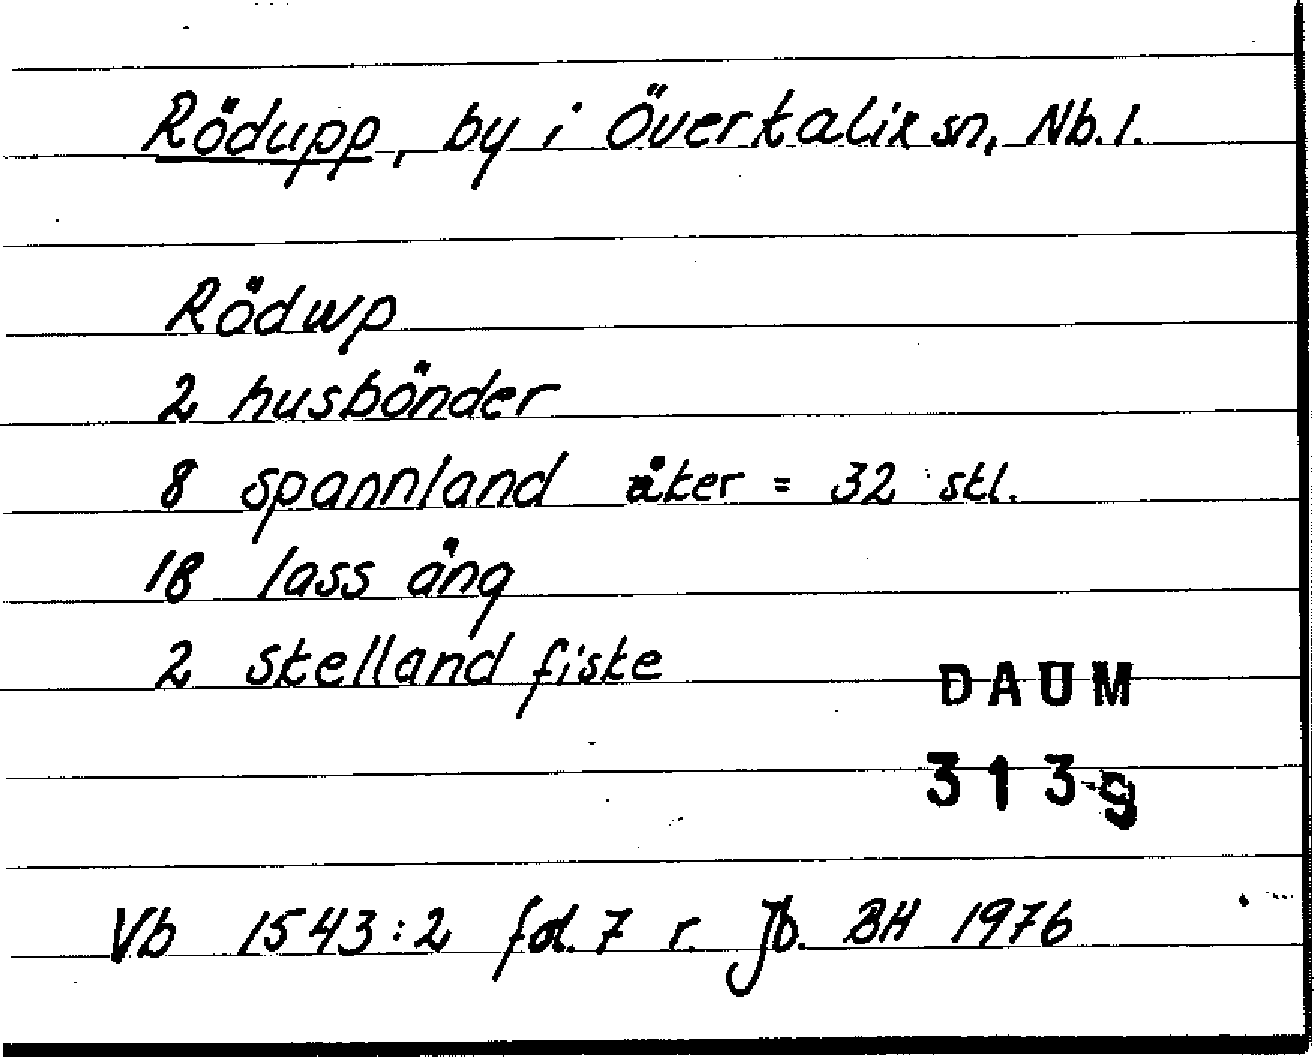 Rödupp, by i Överkalix sn, Nb.l.
Rödwp
2 husbönder
8 spannland åker = 32 skl.
18 lass äng
2 skelland fiske
DAUM
3139
Vb 1543:2 fol. 7 r. Jb. BH 1976